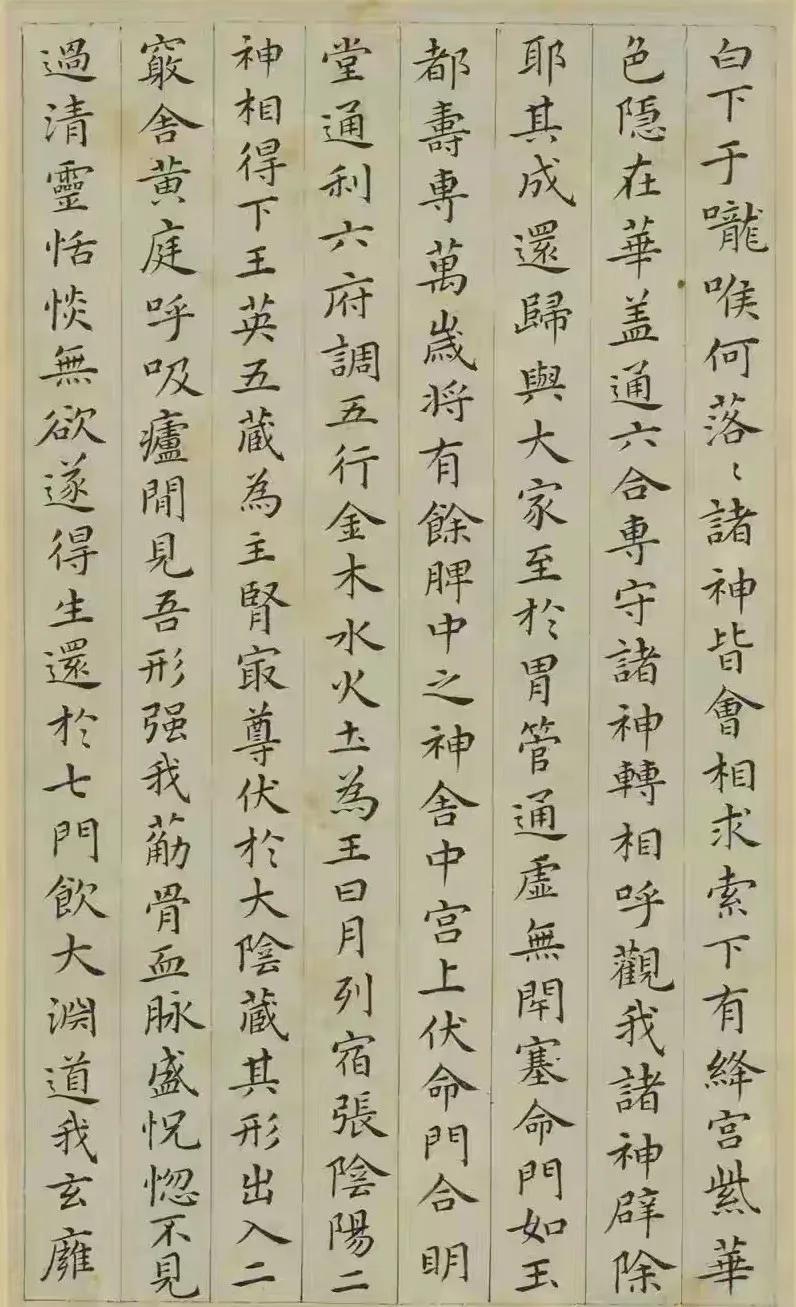 白下于嚨喉何落〻諸神皆會相求索下有絳宮紫華
色隱在華盖通六合專守諸神轉相呼觀我諸神辟除
耶其成還歸與大家至於胃管通虛無閈塞命門如玉
都壽專萬歲将有餘脾中之神舍中宮上伏命門合明
堂通利六府調五行金木水火土為王日月列宿張陰陽二
神相得下王英五蔵為主腎冣尊伏於大陰蔵其形出入二
竅舍黄庭呼吸廬間見吾形强我莇骨血脉盛怳惚不見
過清靈恬惔無欲遂得生還於七門飲大淵道我玄廱